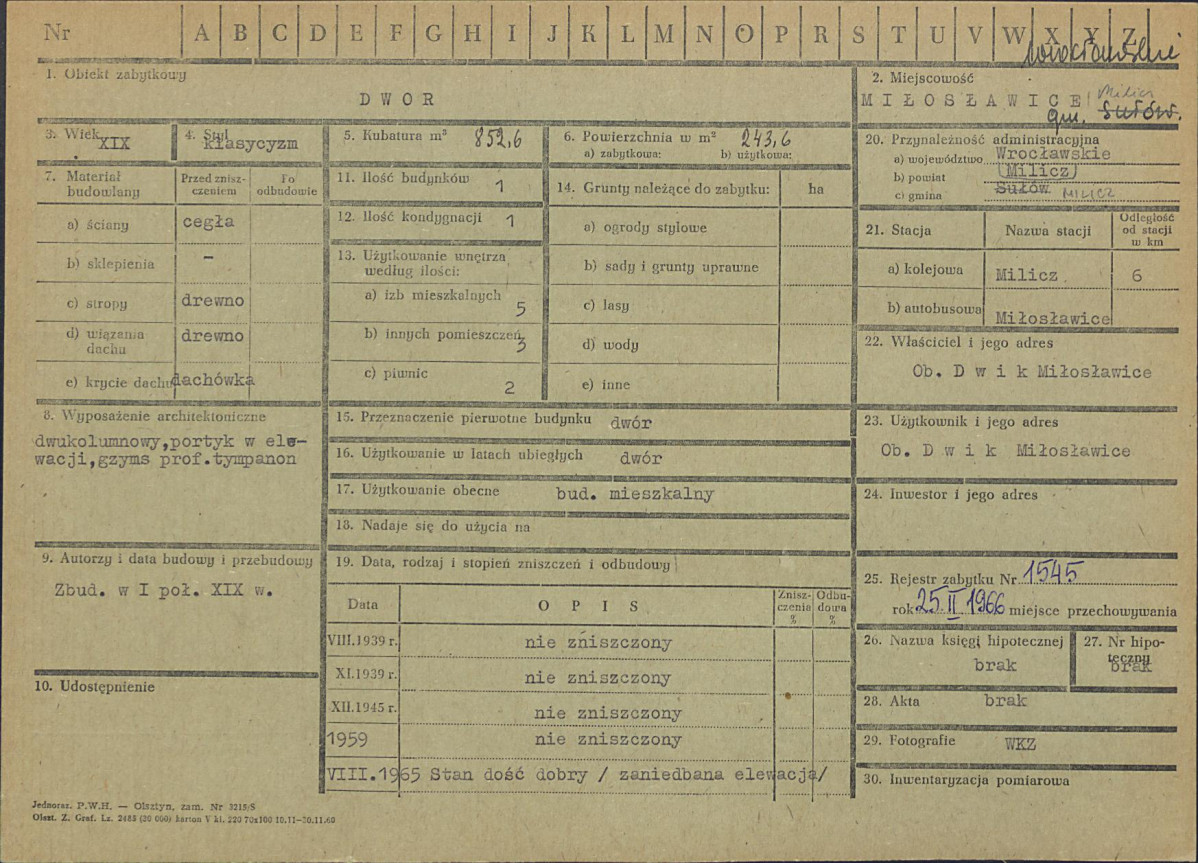 Nr A B C D E F G H I J K L M N O P R S T U V W X Y Z
wrocławskie
1. Obiekt zabytkowy
DWOR
2. Miejscowość
Milicz
MIŁOSŁAWICE
gm. Sułów.
3. Wiek
XIX
4. Styl
klasycyzm
5. Kubatura m³ 852,6
6. Powierzchnia w m² 243,6
a) zabytkowa: b) użytkowa:
7. Materiał budowlany
Przed zniszczeniem
Po odbudowie
a) ściany cegła
b) sklepienia –
c) stropy drewno
d) wiązania dachu drewno
e) krycie dachu dachówka
8. Wyposażenie architektoniczne
dwukolumnowy,portyk w ele-
wacji,gzyms prof.tympanon
9. Autorzy i data budowy i przebudowy
Zbud. w I poł. XIX w.
10. Udostępnienie
11. Ilość budynków 1
12. Ilość kondygnacji 1
13. Użytkowanie wnętrza
według ilości:
a) izb mieszkalnych 5
b) innych pomieszczeń 3
c) piwnic 2
14. Grunty należące do zabytku: ha
a) ogrody stylowe
b) sady i grunty uprawne
c) lasy
d) wody
e) inne
15. Przeznaczenie pierwotne budynku dwór
16. Użytkowanie w latach ubiegłych dwór
17. Użytkowanie obecne bud. mieszkalny
18. Nadaje się do użycia na
19. Data, rodzaj i stopień zniszczeń i odbudowy
Data OPIS Zniszczenia % Odbudowa %
VIII.1939 r. nie zniszczony
XI.1939 r. nie zniszczony
XII.1945 r. nie zniszczony
1959 nie zniszczony
VIII.1965 Stan dość dobry / zaniedbana elewacja/
20. Przynależność administracyjna
a) województwo Wrocławskie
b) powiat (Milicz)
c) gmina Sułów MILICZ
21. Stacja Nazwa stacji Odległość od stacji w km
a) kolejowa Milicz. 6
b) autobusowa Miłosławice
22. Właściciel i jego adres
Ob. D w i k Miłosławice
23. Użytkownik i jego adres
Ob. D w i k Miłosławice
24. Inwestor i jego adres
25. Rejestr zabytku Nr 1545
rok 25.II.1966 miejsce przechowywania
26. Nazwa księgi hipotecznej
brak
27. Nr hipo-
teczny
brak
28. Akta brak
29. Fotografie WKZ
30. Inwentaryzacja pomiarowa
Jednoraz. P.W.H. — Olsztyn, zam. Nr 3215/S
Olszt. Z. Graf. Lz. 2485 (20 000) karton V kl. 220 70x100 10.11—30.11.60